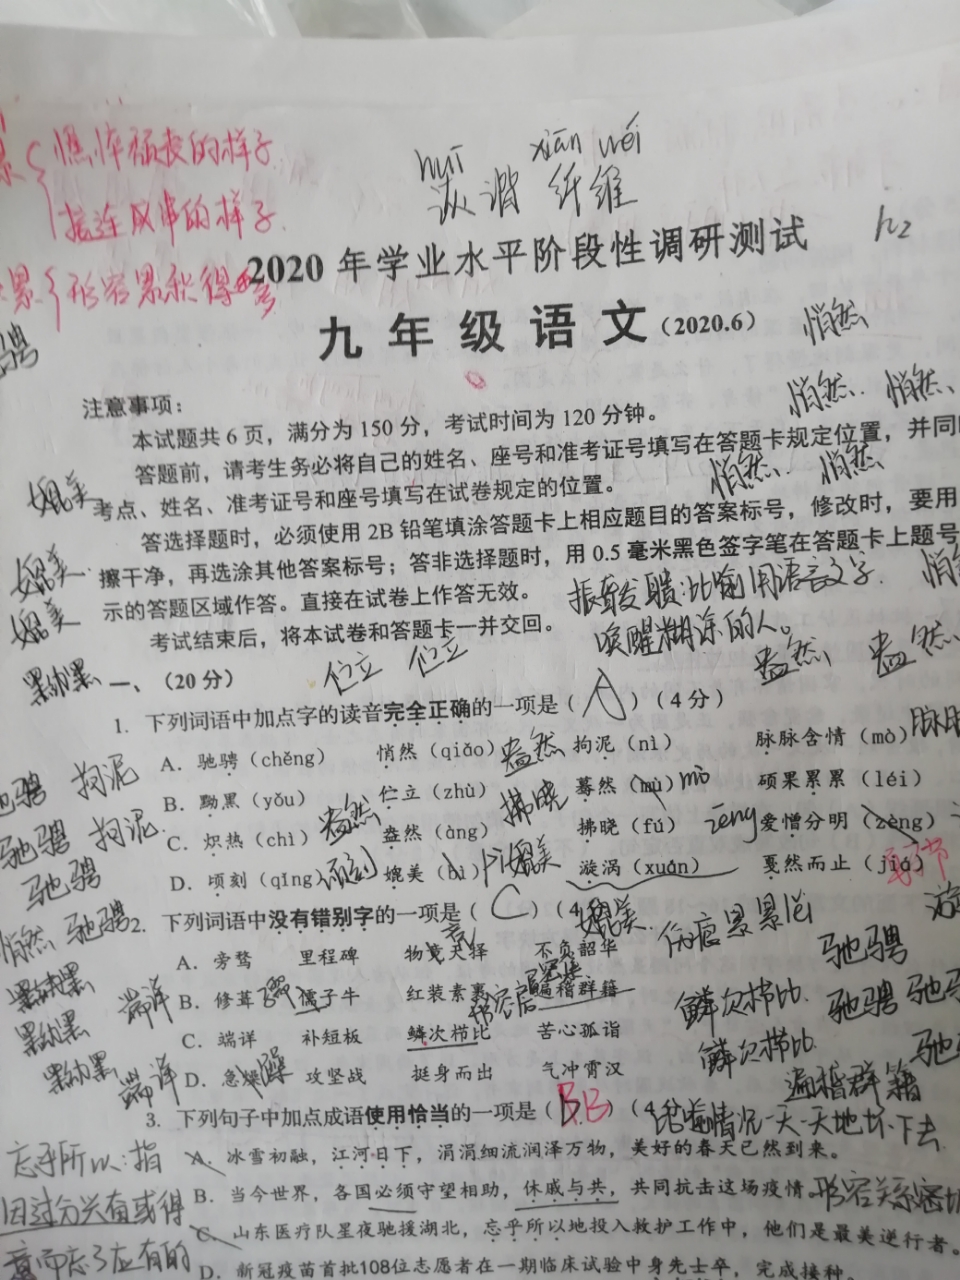 憔悴颓丧的样子
接连成串的样子
形容累积得多
huī xiān wéi
诙谐 纤维
2020 年学业水平阶段性调研测试
九年级语文（2020.6）
悄然
悄然 悄然
注意事项：
本试题共 6 页，满分为 150 分，考试时间为 120 分钟。
答题前，请考生务必将自己的姓名、座号和准考证号填写在答题卡规定位置，并同
考点、姓名、准考证号和座号填写在试卷规定的位置。
悄然 悄然
媲美
答选择题时，必须使用 2B 铅笔填涂答题卡上相应题目的答案标号，修改时，要用
擦干净，再选涂其他答案标号；答非选择题时，用 0.5 毫米黑色签字笔在答题卡上题号
示的答题区域作答。直接在试卷上作答无效。
考试结束后，将本试卷和答题卡一并交回。
媲美
媲美
振聋发聩：比喻用语言文字
唤醒糊涂的人。
伫立 伫立
盎然 盎然
一、（20 分）
1. 下列词语中加点字的读音完全正确的一项是（ A ）（4 分）
A. 驰骋（chěng） 悄然（qiǎo） 拘泥（nì） 脉脉含情（mò）
B. 黝黑（yǒu） 伫立（zhù） 蓦然（mù）mò 硕果累累（léi）
C. 炽热（chì） 盎然（àng） 拂晓（fú） 爱憎分明（zèng） zēng
D. 顷刻（qǐng） 媲美（bì） 漩涡（xuán） 戛然而止（jiá）
盎然 拂晓 盎然 顷刻 媲美
拘泥
驰骋 拘泥
驰骋
悄然 驰骋
2. 下列词语中没有错别字的一项是（ C ）（4 分）
A. 旁骛 里程碑 物竟天择 不负韶华
B. 修葺 儒子牛 红装素裹 遍稽群籍
C. 端详 补短板 鳞次栉比 苦心孤诣
D. 急燥 攻坚战 挺身而出 气冲霄汉
竞 孺 躁
媲美
端详
端详
驰骋
鳞次栉比 驰骋
鳞次栉比
遍稽群籍
3. 下列句子中加点成语使用恰当的一项是（ B ）（4
情况一天一天地坏下去
A. 冰雪初融，江河日下，涓涓细流润泽万物，美好的春天已然到来。
B. 当今世界，各国必须守望相助，休戚与共，共同抗击这场疫情。
形容关系密切
C. 山东医疗队星夜驰援湖北，忘乎所以地投入救护工作中，他们是最美逆行者。
D. 新冠疫苗首批108位志愿者在一期临床试验中身先士卒，完成接种。
忘乎所以：指
因过分兴奋或得
意而忘了应有的